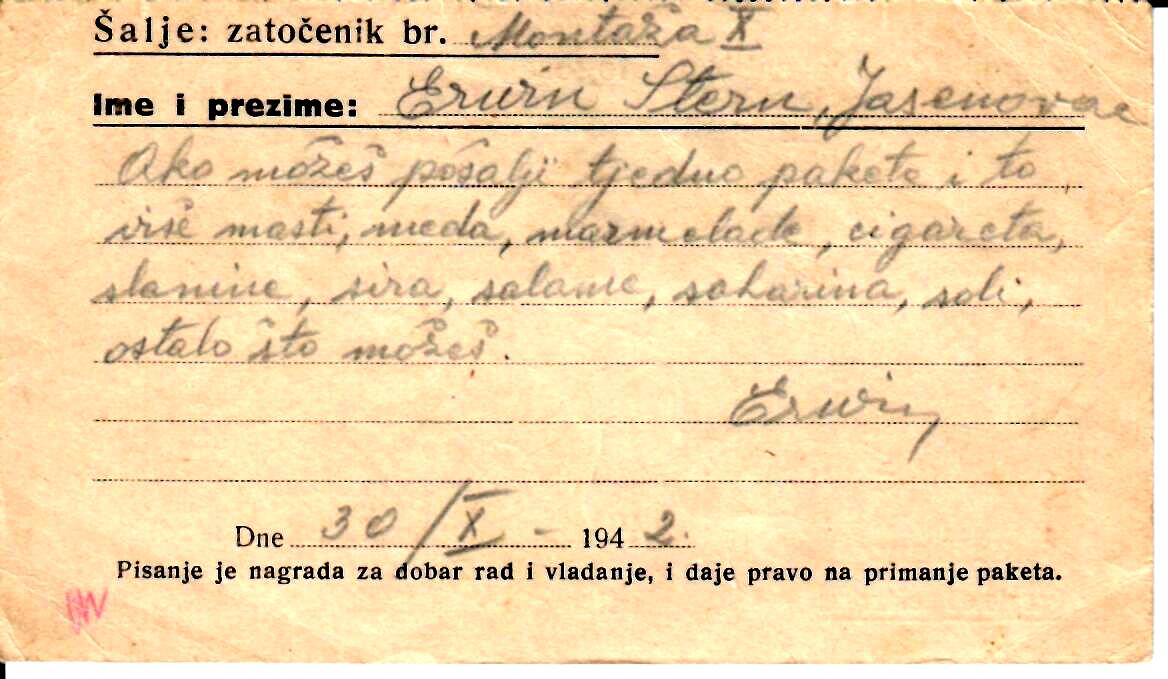 Šalje: zatočenik br. Montaža X
Ime i prezime: Erwin Stern, Jasenovac
Ako možeš pošalji tjedno pakete i to
više masti, meda, marmelade, cigareta,
slanine, sira, salame, saharina, soli,
ostalo što možeš.
Erwin
Dne 30/X - 1942.
Pisanje je nagrada za dobar rad i vladanje, i daje pravo na primanje paketa.